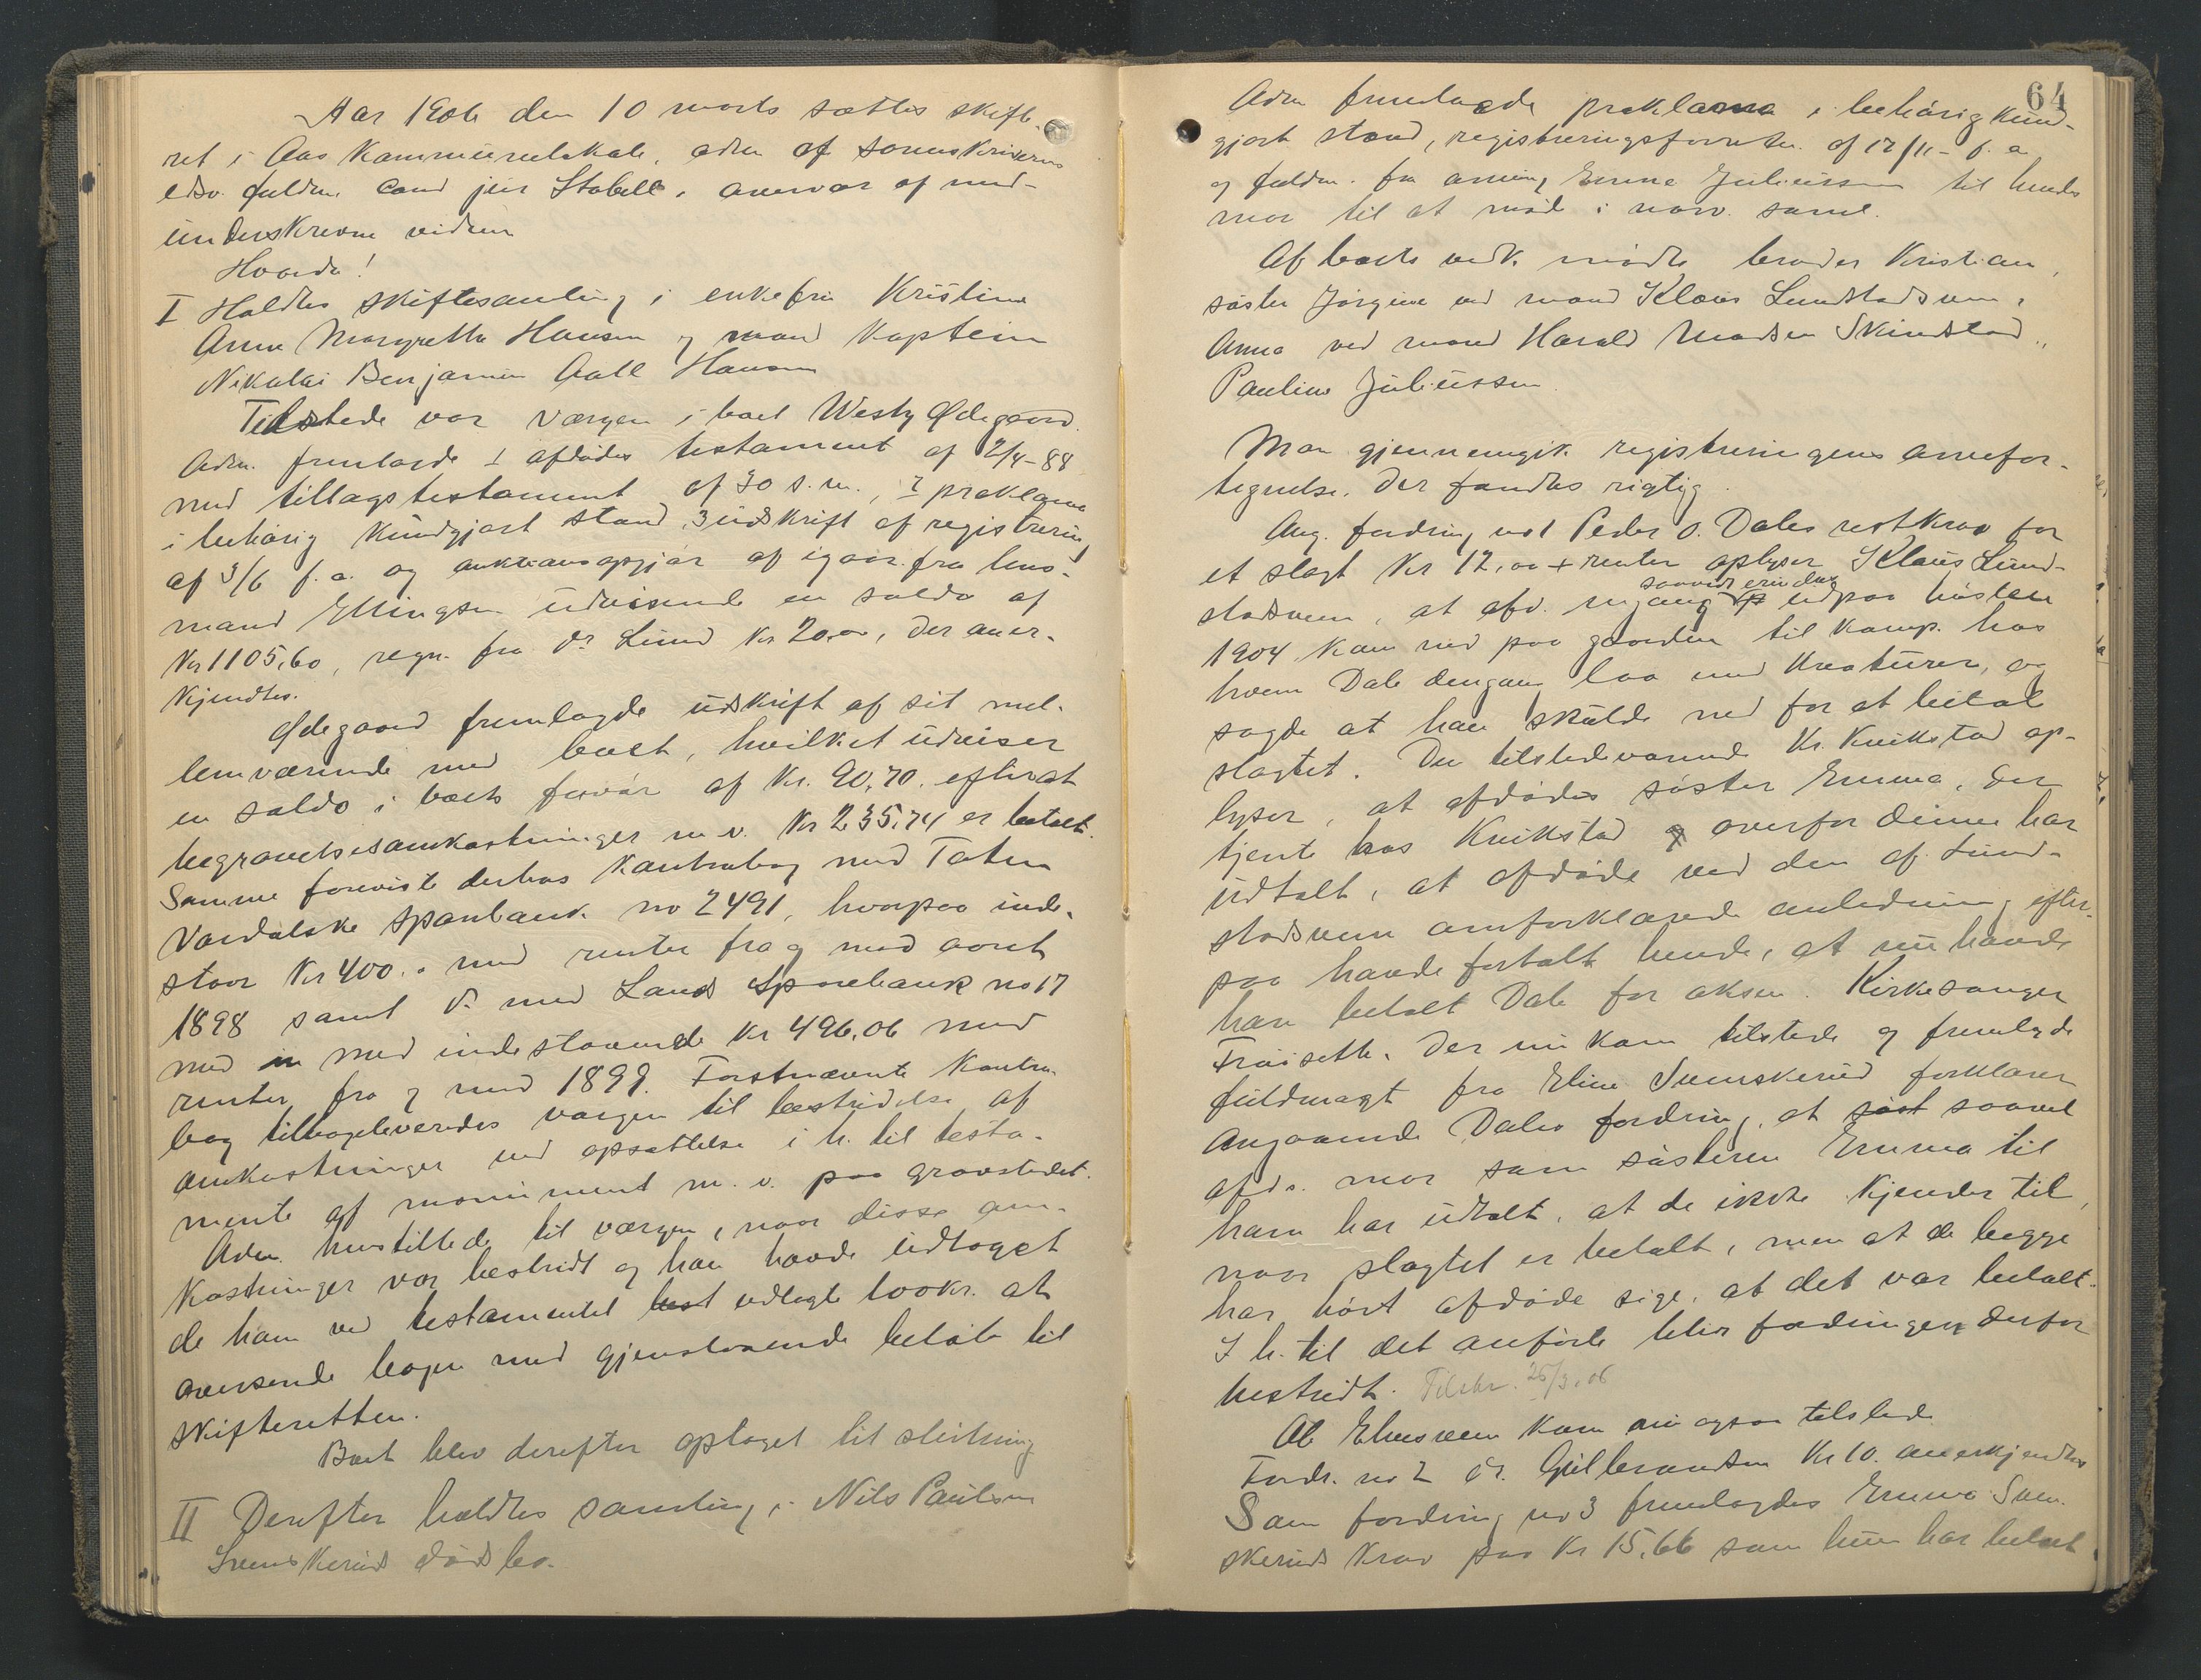 Aar 1906 den 10 marts sattes skifte-
ret i Aas Kommunelokale, adm af sorenskriverens
edsv. fuldm. cand jur Stabell, overvær af med-
underskrevne vidner
Hvorda!
I Holdtes skiftesamling i enkefru Kristine
Anne Margrethe Hansen og mand Kaptein
Nikolai Benjamin Aall Hansen
Tilstede var værgen i boet Westy Ødegaard.
Adm. fremlagde 1 afdødes testament af 2/4-88
med tillægstestament af 30 s.m., 2 proklama
i behørig kundgjort stand, 3 udskrift af registrering
af 3/6 f.a. og auktionsopgjør af igaar fra lens-
mand Ellingsen udvisende en saldo af
Kr 1105,60, regn. fra dr Lund Kr 20,00, der aner-
kjendtes.
Ødegaard fremlagde udskrift af sit mel-
lemværende med boet, hvilket udviser
en saldo i boets favør af Kr. 90,70, efterat
begravelsesomkostninger m.v. Kr 235,74 er betalt.
Samme foreviste derhos Kontrabog med Toten
Vardalske Sparebank no 2491, hvorpaa inde-
staar Kr 400.. med renter fra og med aaret
1898 samt do med Lands Sparebank no 17
med in med indestaaende Kr 496,06 med
renter fra og med 1899. Førstnævnte Kontra-
bog tilbageleveredes værgen til bestridelse af
omkostninger ved opsættelse i h. til testa-
mente af monument m.v. paa gravstedet.
Adm. henstillede til værgen, naar disse om-
kostninger var bestridt og han havde udtaget
de ham ved testamentet best udlagte 100 kr. at
oversende bogen med gjenstaaende beløb til
skifteretten.
Boet blev derefter optaget til slutning
II Derefter holdtes samling i Nils Paulsen
Svenskeruds dødsbo.
64
Adm fremlagde proklama i behørig kund-
gjort stand, registreringsforretn. af 17/11- f.a.
og fuldm. fra arving Emma Juliussen til hendes
mor til at møde i nærv. saml.
Af boets vedk. mødte broder Kristian,
søster Jørgine ved mand Klaus Lundstadsveen,
Anna ved mand Harald Madsen Skindstad,,
Pauline Juliussen.
Man gjennemgik registreringens arvefor-
tegnelse, der fandtes rigtig.
Ang. fordring no 1 Peder O. Dales restkrav for
et slagt Kr 12,00 + renter oplyser Klaus Lund-
stadsveen, at afd. engang saavidt erindres udpaa høsten
1904 kom ned paa gaarden til Kamp. hos
hvem Dale dengang laa med Kreaturer, og
sagde at han skulde ned for at betale
slagtet. Den tilstedeværende Kr. Kvikstad op-
lyser, at afdødes søster Emma, der
tjente hos Kvikstad og overfor denne har
udtalt, at afdøde ved den af Lund-
stadsveen omforklarede anledning efter-
paa havde fortalt hende, at nu havde
han betalt Dale for oksen. Kirkesanger
Frøisette, der nu kom tilstede og fremlagde
fuldmagt fra Eline Svenskerud forklarer
angaaende Dales fordring, at søst saavel
afds. mor som søsteren Emma til
ham har udtalt, at de ikke kjender til,
naar slagtet er betalt, men at de begge
har hørt afdøde sige, at det var betalt.
I h. til det anførte blir fordringen derfor
bestridt. Tilskr. 26/3.06
Ole Elvesveen kom nu ogsaa tilstede.
Fordr. no 2 dr. Gulbrandsen Kr 10. anerkjendtes
Som fordring no 3 fremlagdes Emma Sven-
skeruds krav paa Kr 15,66 som hun har betalt